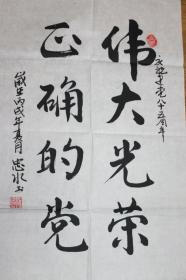 庆祝建党八十五周年
伟大光荣
正确的党
岁在丙戌年夏月忠水书